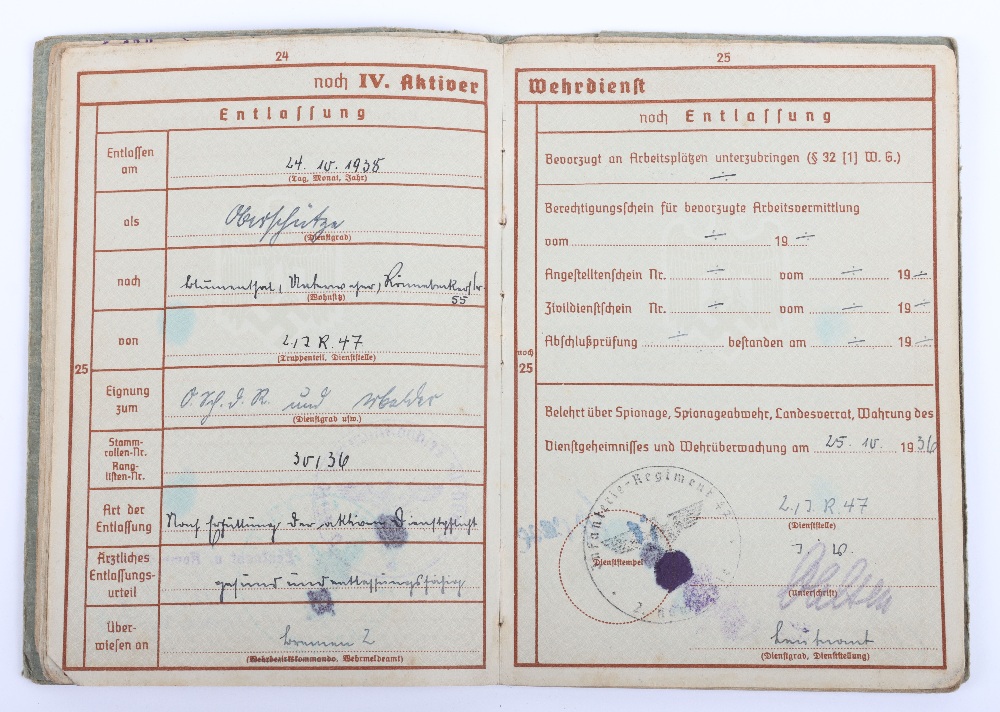 24
noch IV. Aktiver
Entlassung
25
Entlassen am
24. 10. 1938
(Tag, Monat, Jahr)
als
Oberschütze
(Dienstgrad)
nach
Blumenthal,
55
(Wohnsitz)
von
2./J.R. 47
(Truppenteil, Dienststelle)
Eignung zum
O. Sch. d. R. und Melder
(Dienstgrad usw.)
Stamm-
rollen-Nr.
Rang-
listen-Nr.
30/36
Art der Entlassung
Nach Erfüllung der aktiven Dienstpflicht
Ärztliches
Entlassungs-
urteil
gesund und entlassungsfähig
Über-
wiesen an
Bremen 2
(Wehrbezirkskommando, Wehrmeldeamt)
25
Wehrdienst
noch Entlassung
noch
25
Bevorzugt an Arbeitsplätzen unterzubringen (§ 32 [1] W. G.)
÷
Berechtigungsschein für bevorzugte Arbeitsvermittlung
vom ÷ 19 ÷
Angestelltenschein Nr. ÷ vom ÷ 19 ÷
Zivildienstschein Nr. ÷ vom ÷ 19 ÷
Abschlußprüfung ÷ bestanden am ÷ 19 ÷
Belehrt über Spionage, Spionageabwehr, Landesverrat, Wahrung des
Dienstgeheimnisses und Wehrüberwachung am 25. 10. 1936
Infanterie-Regiment 47
2.
Dienststempel
2./J.R. 47
(Dienststelle)
(Unterschrift)
Leutnant
(Dienstgrad, Dienststellung)